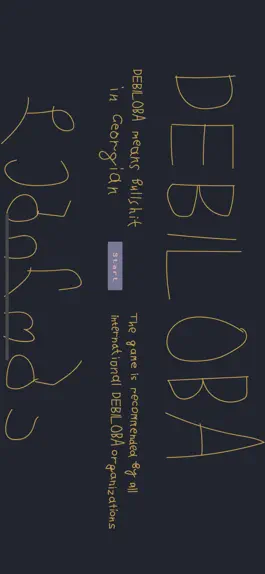 DEBILOBA
DEBILOBA means Bullshit
in Georgian
Start
The game is recommended By all
International DEBILOBA organizations
დებილობა